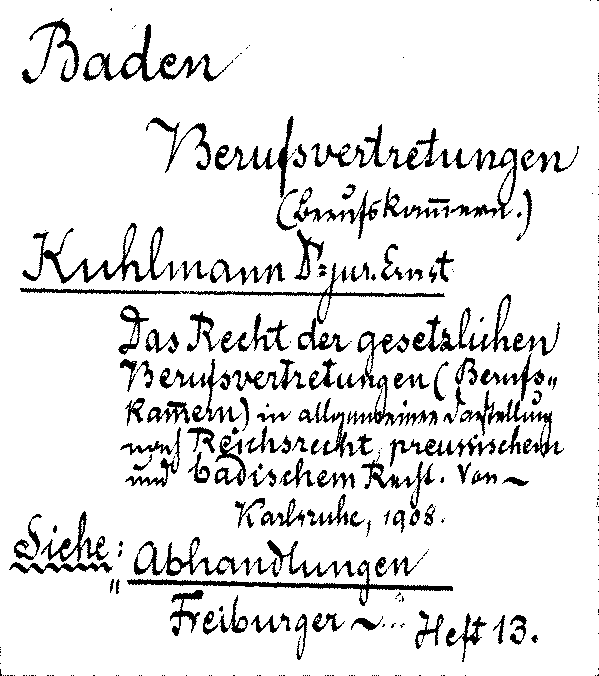 Baden
Berufsvertretungen
(Berufskam̅ern.)
Kuhlmann Dr. jur. Ernst
Das Recht der gesetzlichen
Berufsvertretungen (Berufs-
kam̅ern) in allgemeiner Darstellung
nach Reichsrecht, preussischem
und badischem Recht. Von ~
Karlsruhe, 1908.
Siehe: Abhandlungen
" Freiburger ~... Heft 13.